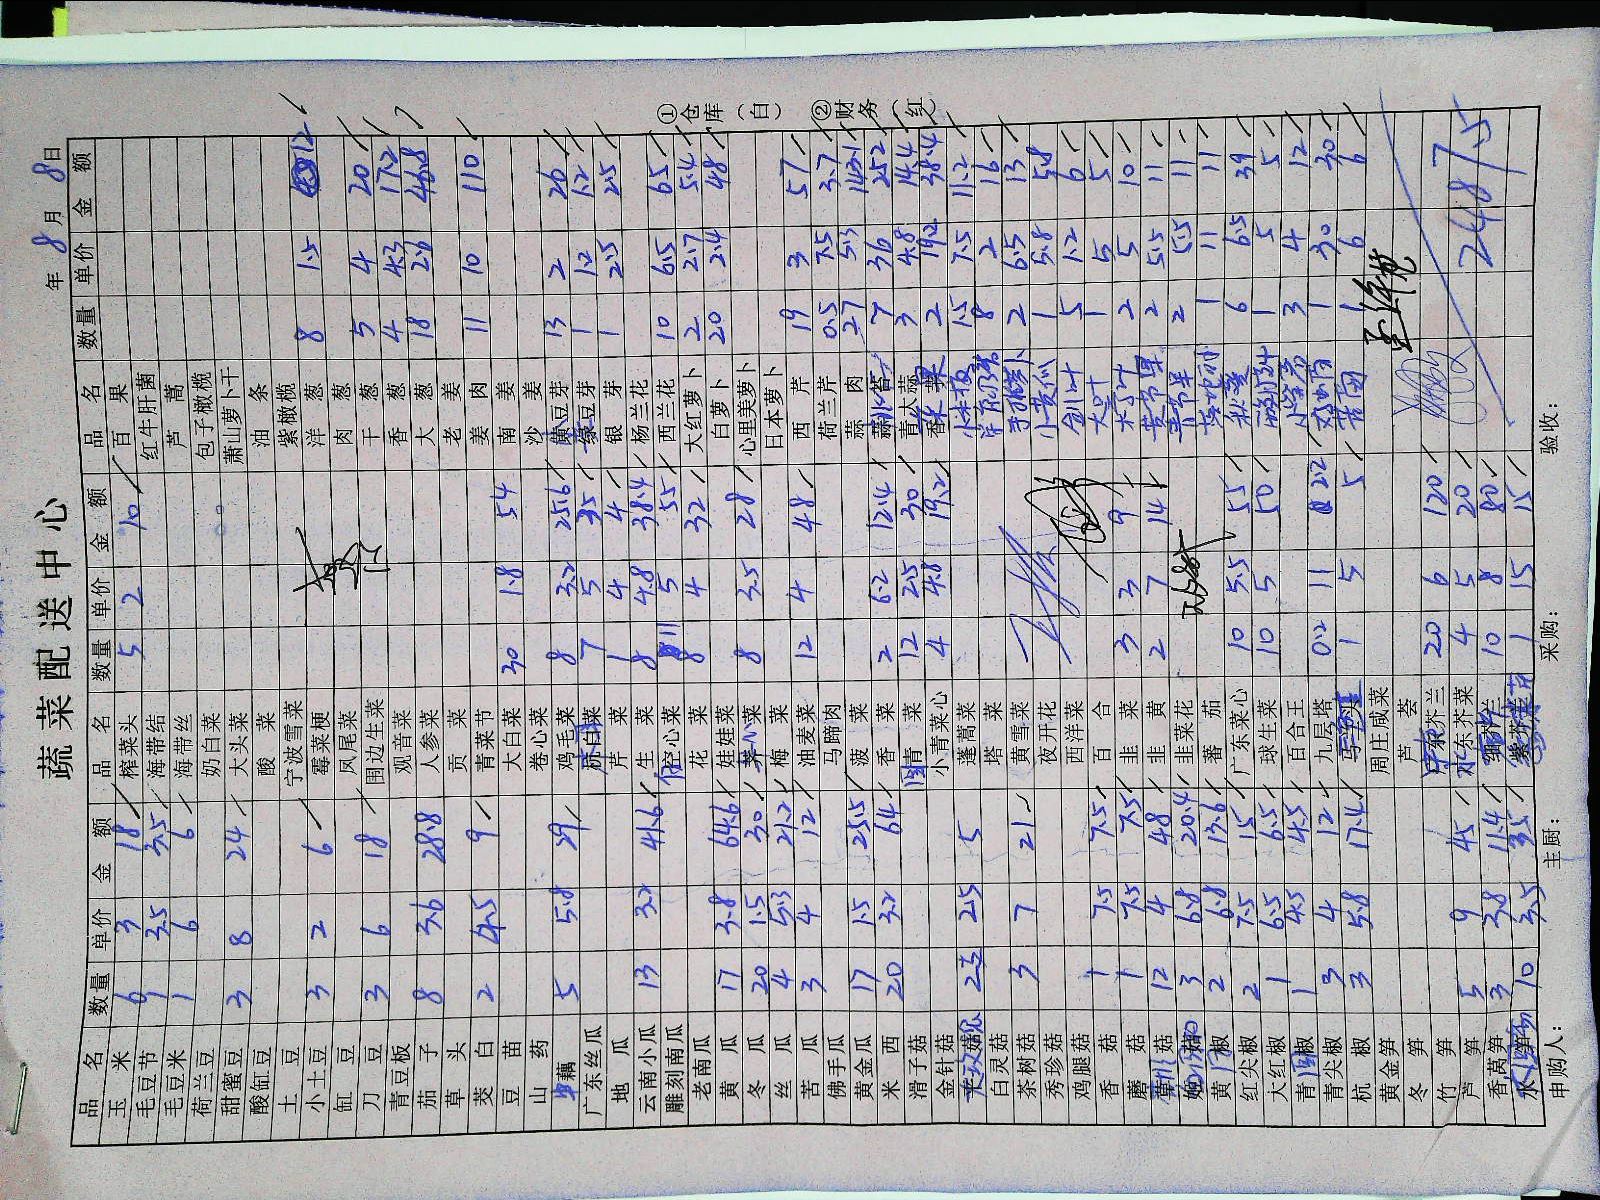 蔬菜配送中心
年 8月 8日
品名 数量 单价 金额 品名 数量 单价 金额 品名 数量 单价 金额
玉米 6 3 18 榨菜头 5 2 10 百果
毛豆节 1 3.5 3.5 海带结 红牛肝菌
毛豆米 1 6 6 海带丝 芦蒿
荷兰豆 奶白菜 包子橄榄
甜蜜豆 3 8 24 大头菜 萧山萝卜干
酸缸豆 酸菜 油条
土豆 宁波雪菜 紫橄榄
小土豆 3 2 6 霉菜梗 洋葱 8 1.5 12
缸豆 凤尾菜 肉葱
刀豆 3 6 18 围边生菜 干葱 5 4 20
青豆板 观音菜 香葱 4 4.3 17.2
茄子 8 3.6 28.8 人参菜 大葱 18 2.6 46.8
草头 贡菜 老姜
茭白 2 4.5 9 青菜节 姜肉 11 10 110
豆苗 大白菜 30 1.8 54 南姜
山药 卷心菜 沙姜
藕 5 5.8 29 鸡毛菜 8 3.2 25.6 黄豆芽 13 2 26
广东丝瓜 杭白菜 7 5 35 绿豆芽 1 1.2 1.2
地瓜 芹菜 1 4 4 银芽 1 2.5 2.5
云南小瓜 13 3.2 41.6 生菜 8 4.8 38.4 杨兰花
雕刻南瓜 空心菜 11 5 55 西兰花 10 6.5 65
老南瓜 花菜 8 4 32 大红萝卜 2 2.7 5.4
黄瓜 17 3.8 64.6 娃娃菜 白萝卜 20 2.4 48
冬瓜 20 1.5 30 心菜 8 3.5 28 心里美萝卜
丝瓜 4 5.3 21.2 梅菜 日本萝卜
苦瓜 3 4 12 油麦菜 12 4 48 西芹 19 3 57
佛手瓜 马蹄肉 荷兰芹 0.5 7.5 3.7
黄金瓜 17 1.5 25.5 菠菜 蒜肉 27 5.3 143.1
米西 20 3.2 64 香菜 2 6.2 12.4 7 36 252
滑子菇 青菜 12 2.5 30 青大蒜 3 4.8 14.4
金针菇 小青菜心 4 4.8 19.2 2 19.2 38.4
2 2.5 5 蓬蒿菜 1.5 7.5 11.2
白灵菇 塔菜 8 2 16
茶树菇 3 7 21 黄雪菜 2 6.5 13
秀珍菇 夜开花 小黄瓜 1 5.8 5.8
鸡腿菇 西洋菜 5 1.2 6
香菇 1 7.5 7.5 百合 大叶 1 5 5
蘑菇 1 7.5 7.5 韭菜 3 3 9 2 5 10
菇 12 4 48 韭黄 2 7 14 黄节瓜 2 5.5 11
3 6.8 20.4 韭菜花 2 5.5 11
黄椒 2 6.8 13.6 番茄 1 11 11
红尖椒 2 7.5 15 广东菜心 10 5.5 55 秋葵 6 6.5 39
大红椒 1 6.5 6.5 球生菜 10 5 50 1 5 5
青椒 1 4.5 4.5 百合王 3 4 12
青尖椒 3 4 12 九层塔 0.2 11 2.2 1 30 30
杭椒 3 5.8 17.4 1 5 5 1 6 6
黄金笋 周庄咸菜
冬笋 芦荟
竹笋 芥兰 20 6 120
芦笋 5 9 45 东芥菜 4 5 20
香莴笋 3 3.8 11.4 10 8 80
水笋 10 3.5 35 1 15 15
2487.5
申购人： 主厨： 采购： 验收：
①仓库（白） ②财务（红）